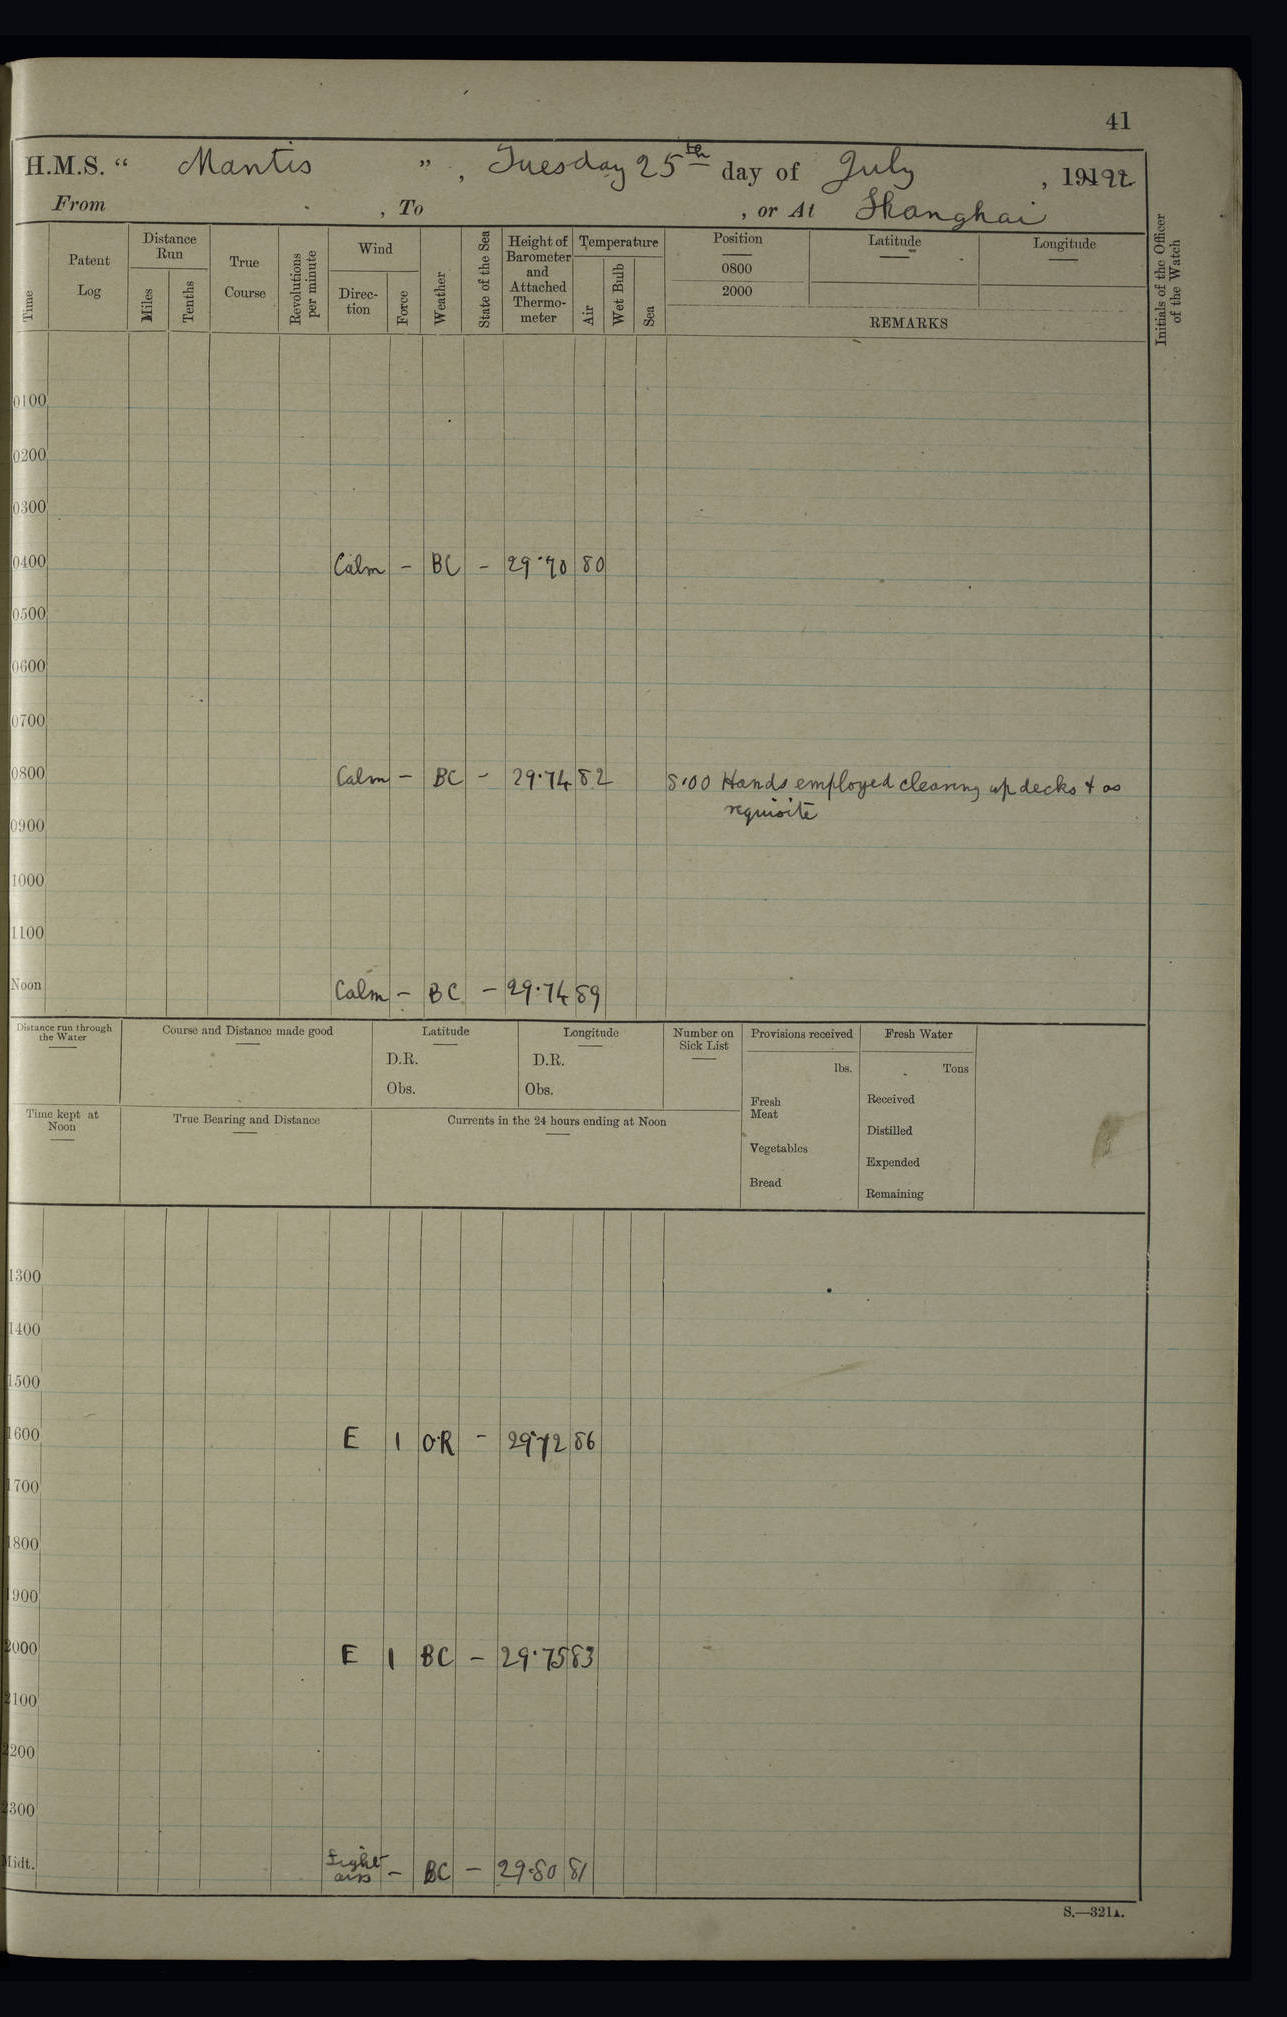 41
H.M.S. “ Mantis ” , Tuesday 25th day of July , 1922
From , To , or At Shanghai
Time
Patent Log
Distance Run
Miles
Tenths
True Course
Revolutions per minute
Wind
Direc-tion
Force
Weather
State of the Sea
Height of Barometer and Attached Thermo-meter
Temperature
Air
Wet Bulb
Sea
Position
0800
2000
Latitude
Longitude
REMARKS
Initials of the Officer of the Watch
0100
0200
0300
0400 Calm – BC – 29·70 80
0500
0600
0700
0800 Calm – BC – 29·74 82 8·00 Hands employed cleaning up decks & as
requisite
0900
1000
1100
Noon Calm – BC – 29·74 89
Distance run through the Water
Course and Distance made good
Latitude
D.R.
Obs.
Longitude
D.R.
Obs.
Number on Sick List
Provisions received
lbs.
Fresh Meat
Vegetables
Bread
Fresh Water
Tons
Received
Distilled
Expended
Remaining
Time kept at Noon
True Bearing and Distance
Currents in the 24 hours ending at Noon
1300
1400
1500
1600 E 1 O·R – 29·72 86
1700
1800
1900
2000 E 1 BC – 29·75 83
2100
2200
2300
Midt. Light airs – BC – 29·80 81
S.—321A.